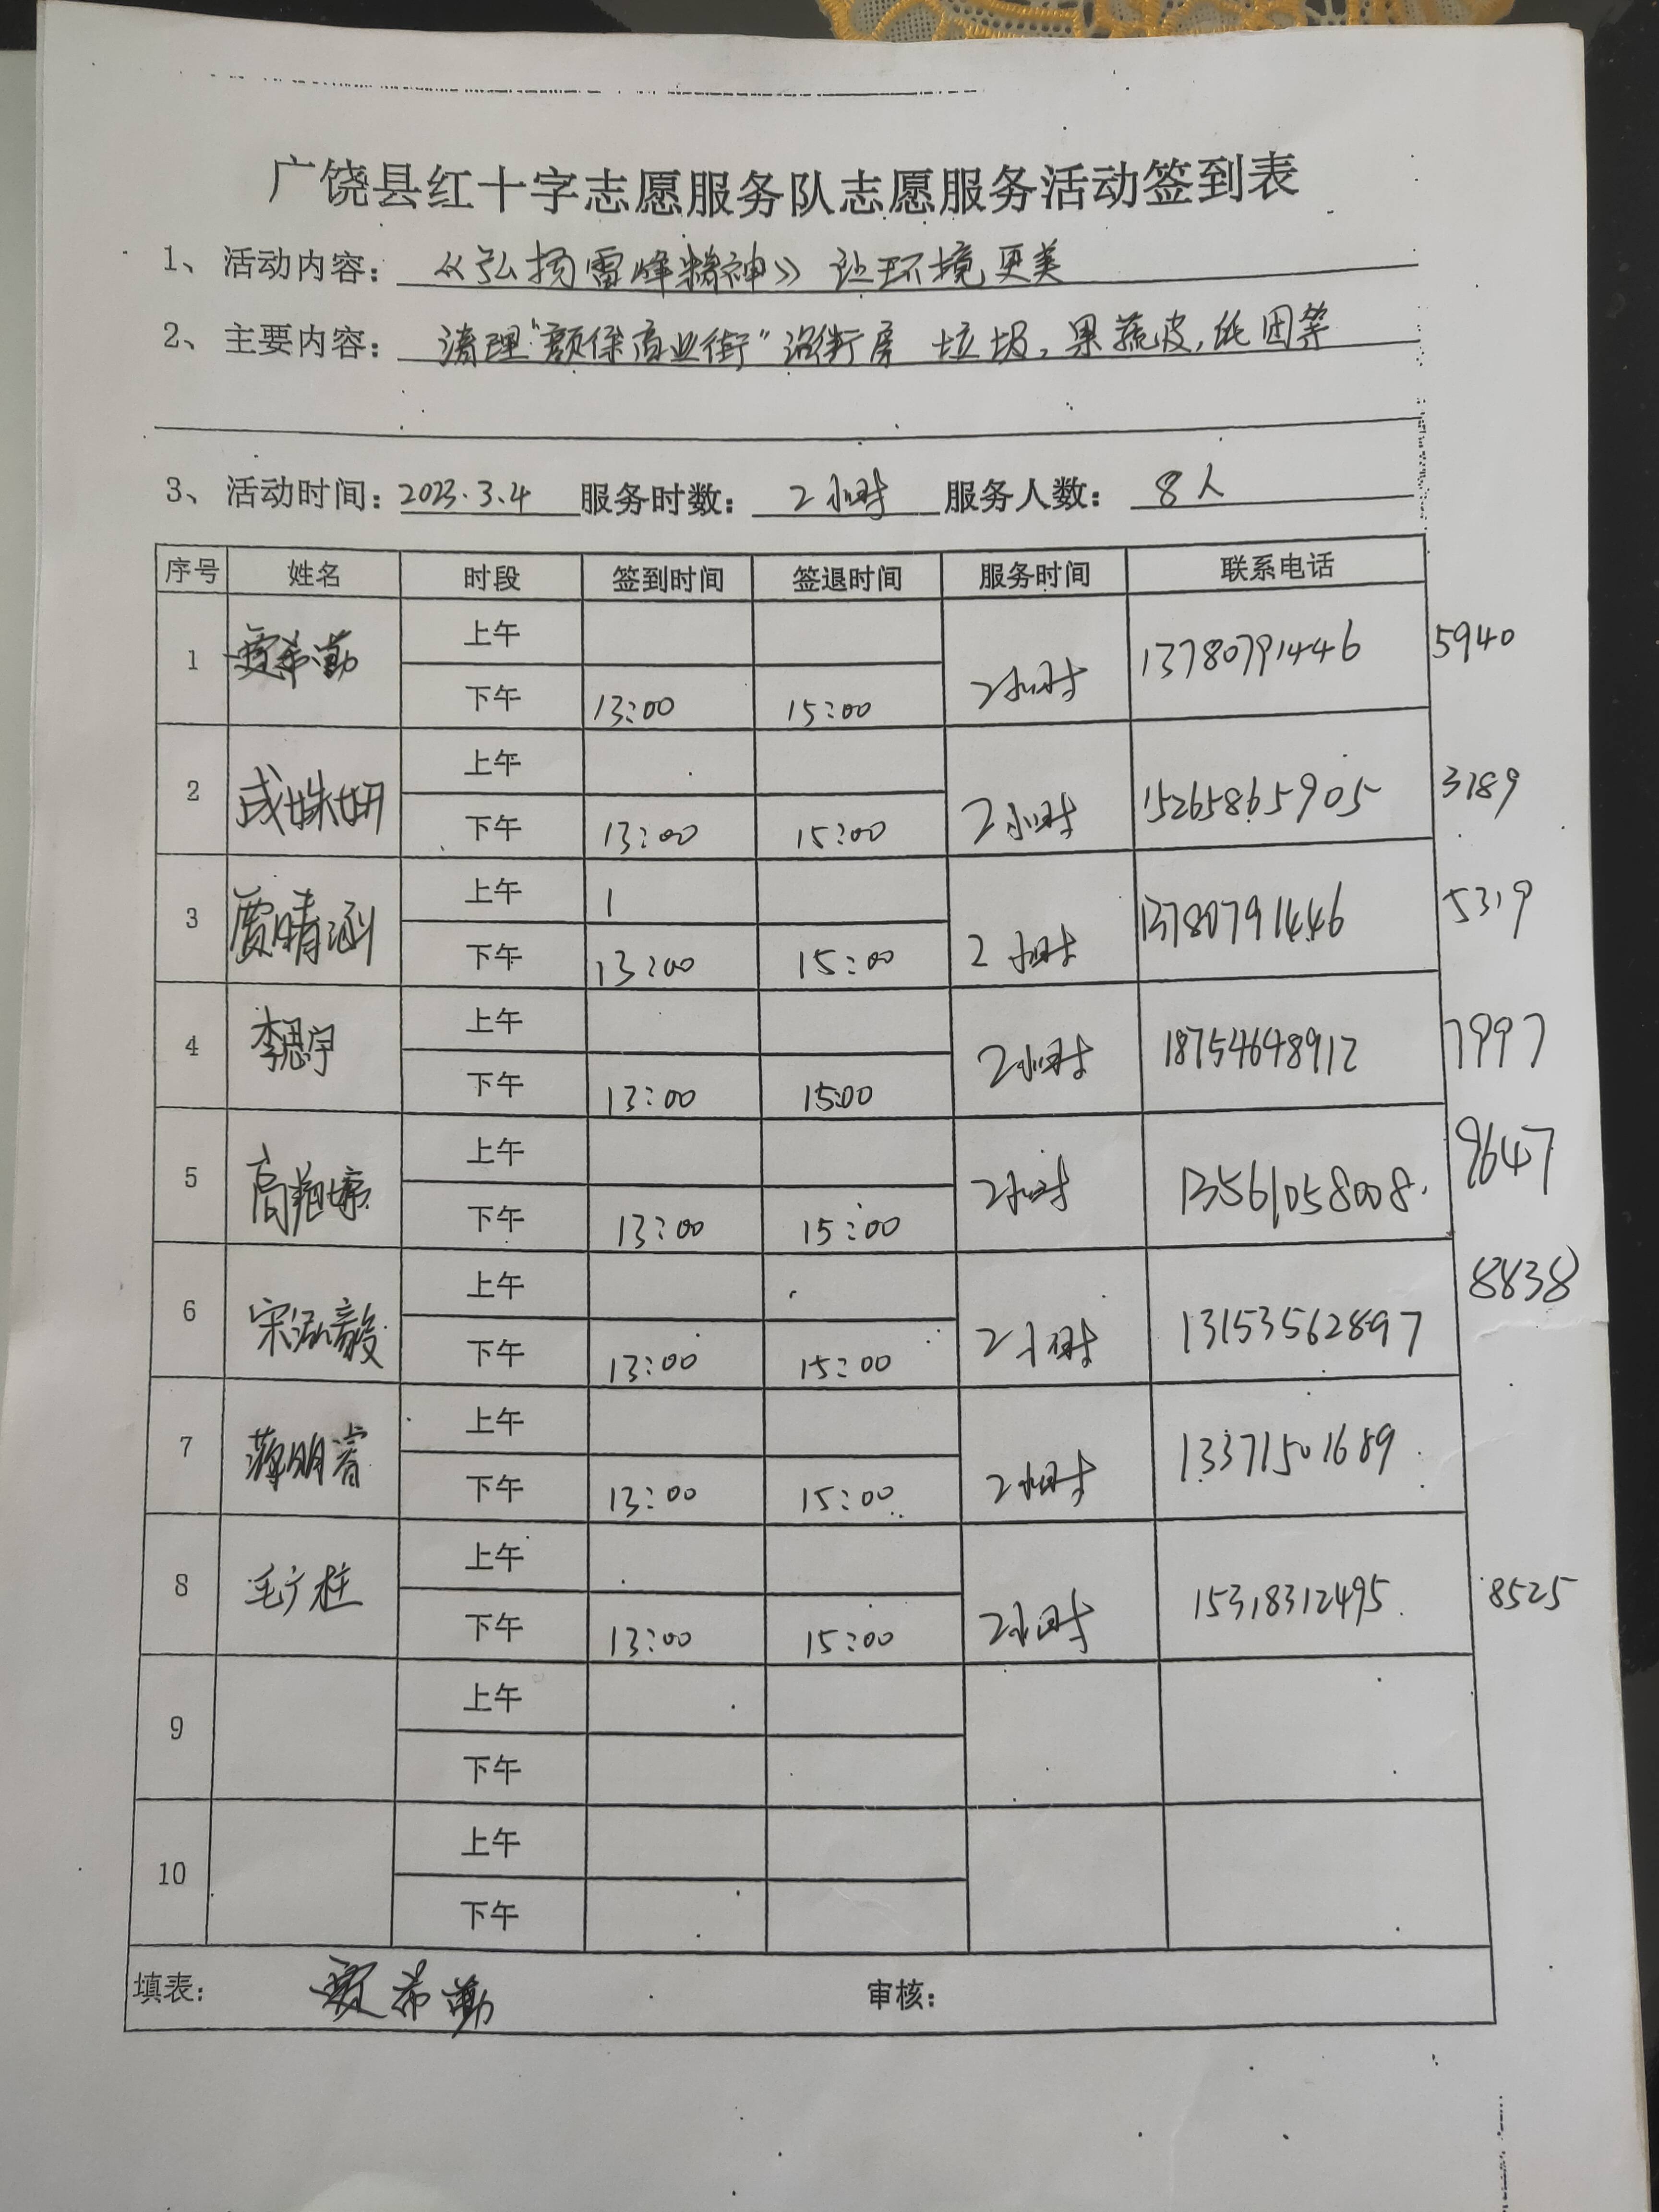 广饶县红十字志愿服务队志愿服务活动签到表
1、活动内容：《弘扬雷锋精神》让环境更美
2、主要内容：清理"颐保商业街"沿街房 垃圾，果蔬皮，等
3、活动时间：2023.3.4 服务时数：2小时 服务人数：8人
序号 姓名 时段 签到时间 签退时间 服务时间 联系电话
1 贾希勤 上午 2小时 13780791446 5940
下午 13:00 15:00
2 成姝妍 上午 2小时 15265865905 3189
下午 13:00 15:00
3 贾晴涵 上午 1 2小时 13780791446 5319
下午 13:00 15:00
4 李思宇 上午 2小时 18754648912 7997
下午 13:00 15:00
5 高 上午 2小时 13561058008. 9647
下午 13:00 15:00
6 宋泓毅 上午 2小时 13153562897 8838
下午 13:00 15:00
7 薄明睿 上午 2小时 13371501689
下午 13:00 15:00
8 毛广柱 上午 2小时 15318312495 8525
下午 13:00 15:00
9 上午
下午
10 上午
下午
填表：贾希勤 审核：